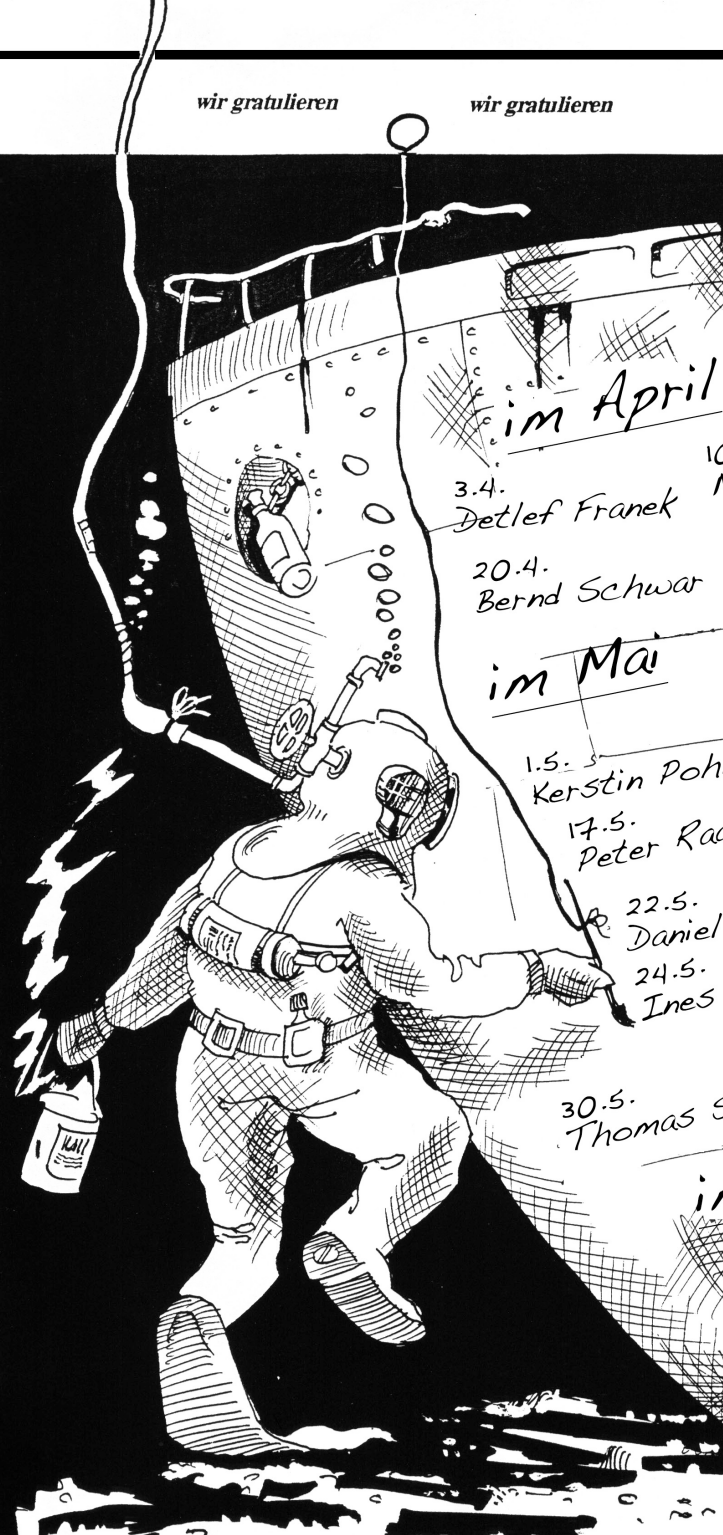 wir gratulieren wir gratulieren
im April
3.4.
Detlef Franek
20.4.
Bernd Schwar
im Mai
1.5.
Kerstin Poh
17.5.
Peter
22.5.
Daniel
24.5.
Ines
30.5.
Thomas S